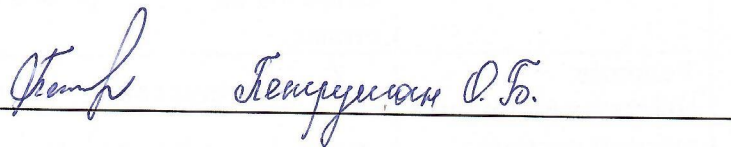 Петрушан О. Б.